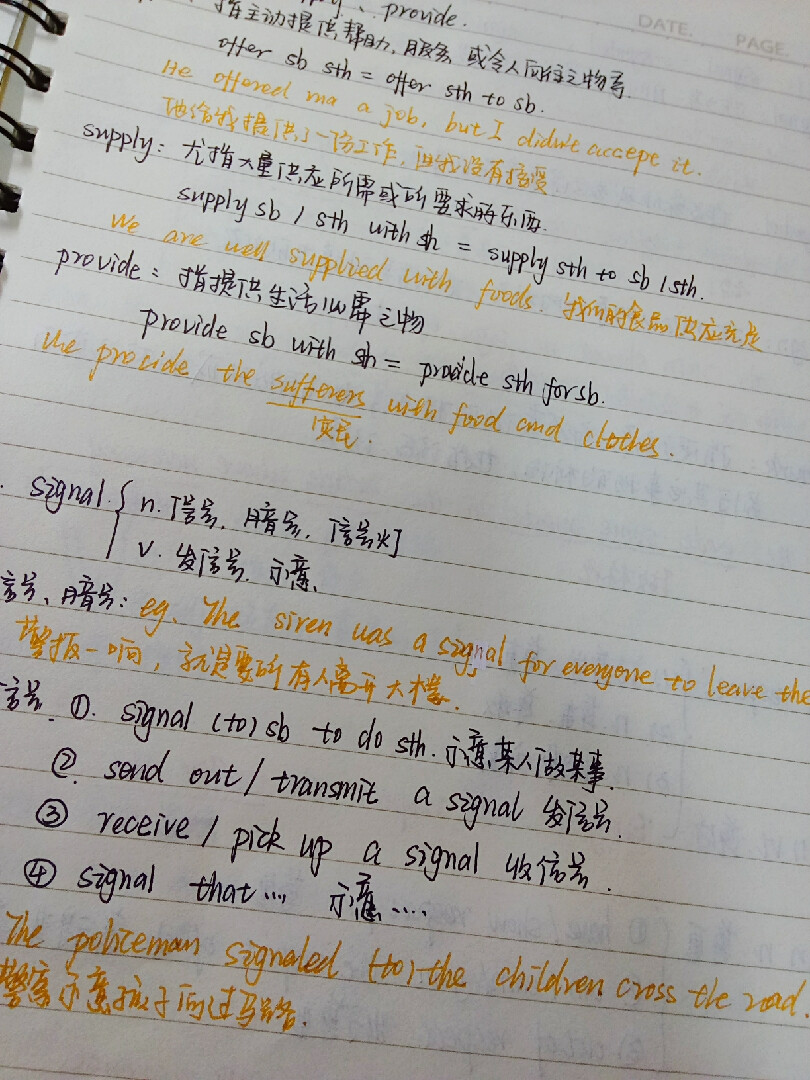 provide.
DATE. PAGE.
指主动提供帮助,服务,或令人向往之物等.
offer sb sth = offer sth to sb.
He offered me a job, but I didn't accept it.
他给我提供了一份工作,但我没有接受
supply: 尤指大量供应所需或所要求的东西.
supply sb / sth with sth = supply sth to sb / sth.
We are well supplied with foods. 我们的食品供应充足
provide: 指提供生活必需之物
provide sb with sth = provide sth for sb.
We procide the sufferers with food and clothes.
灾民.
signal. { n. 信号, 暗号, 信号灯
v. 发信号, 示意.
信号、暗号: eg. The siren was a signal for everyone to leave the
警报一响, 就是要所有人离开大楼.
信号. ①. signal (to) sb to do sth. 示意某人做某事.
②. send out / transmit a signal 发信号.
③ receive / pick up a signal 收信号.
④ signal that... 示意....
The policeman signaled (to) the children cross the road.
警察示意孩子们过马路.